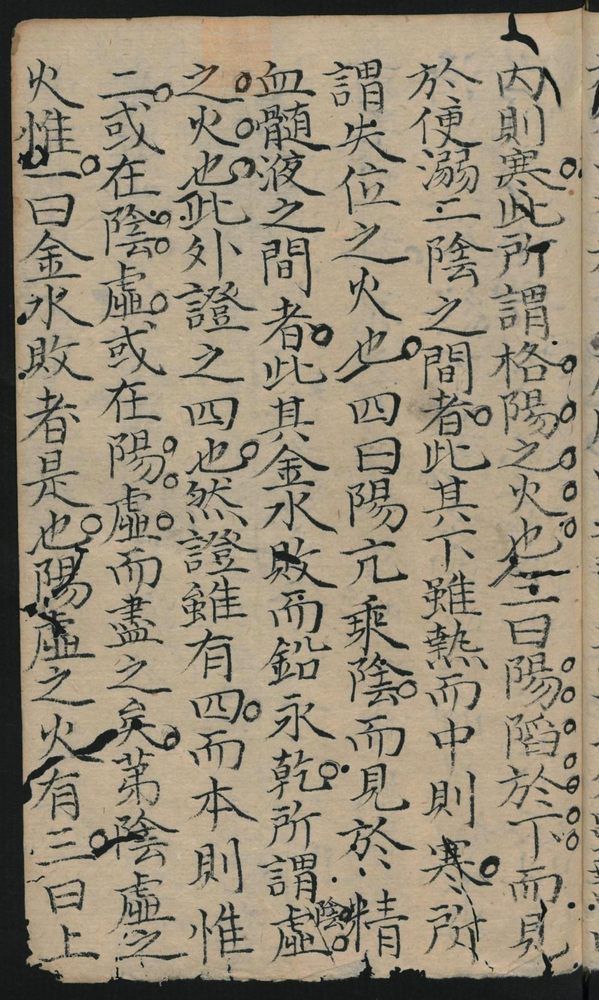 內則寒此所謂格陽之火也三曰陽陷於下而見
於便溺二陰之間者此其下雖熱而中則寒所
謂失位之火也四曰陽亢乘陰而見於精
血髓液之間者此其金水敗而鉛汞乾所謂陰虛
之火也此外證之四也然證雖有四而本則惟
二或在陰虛或在陽虛而盡之矣第陰虛之
火惟一曰金水敗者是也陽虛之火有三曰上